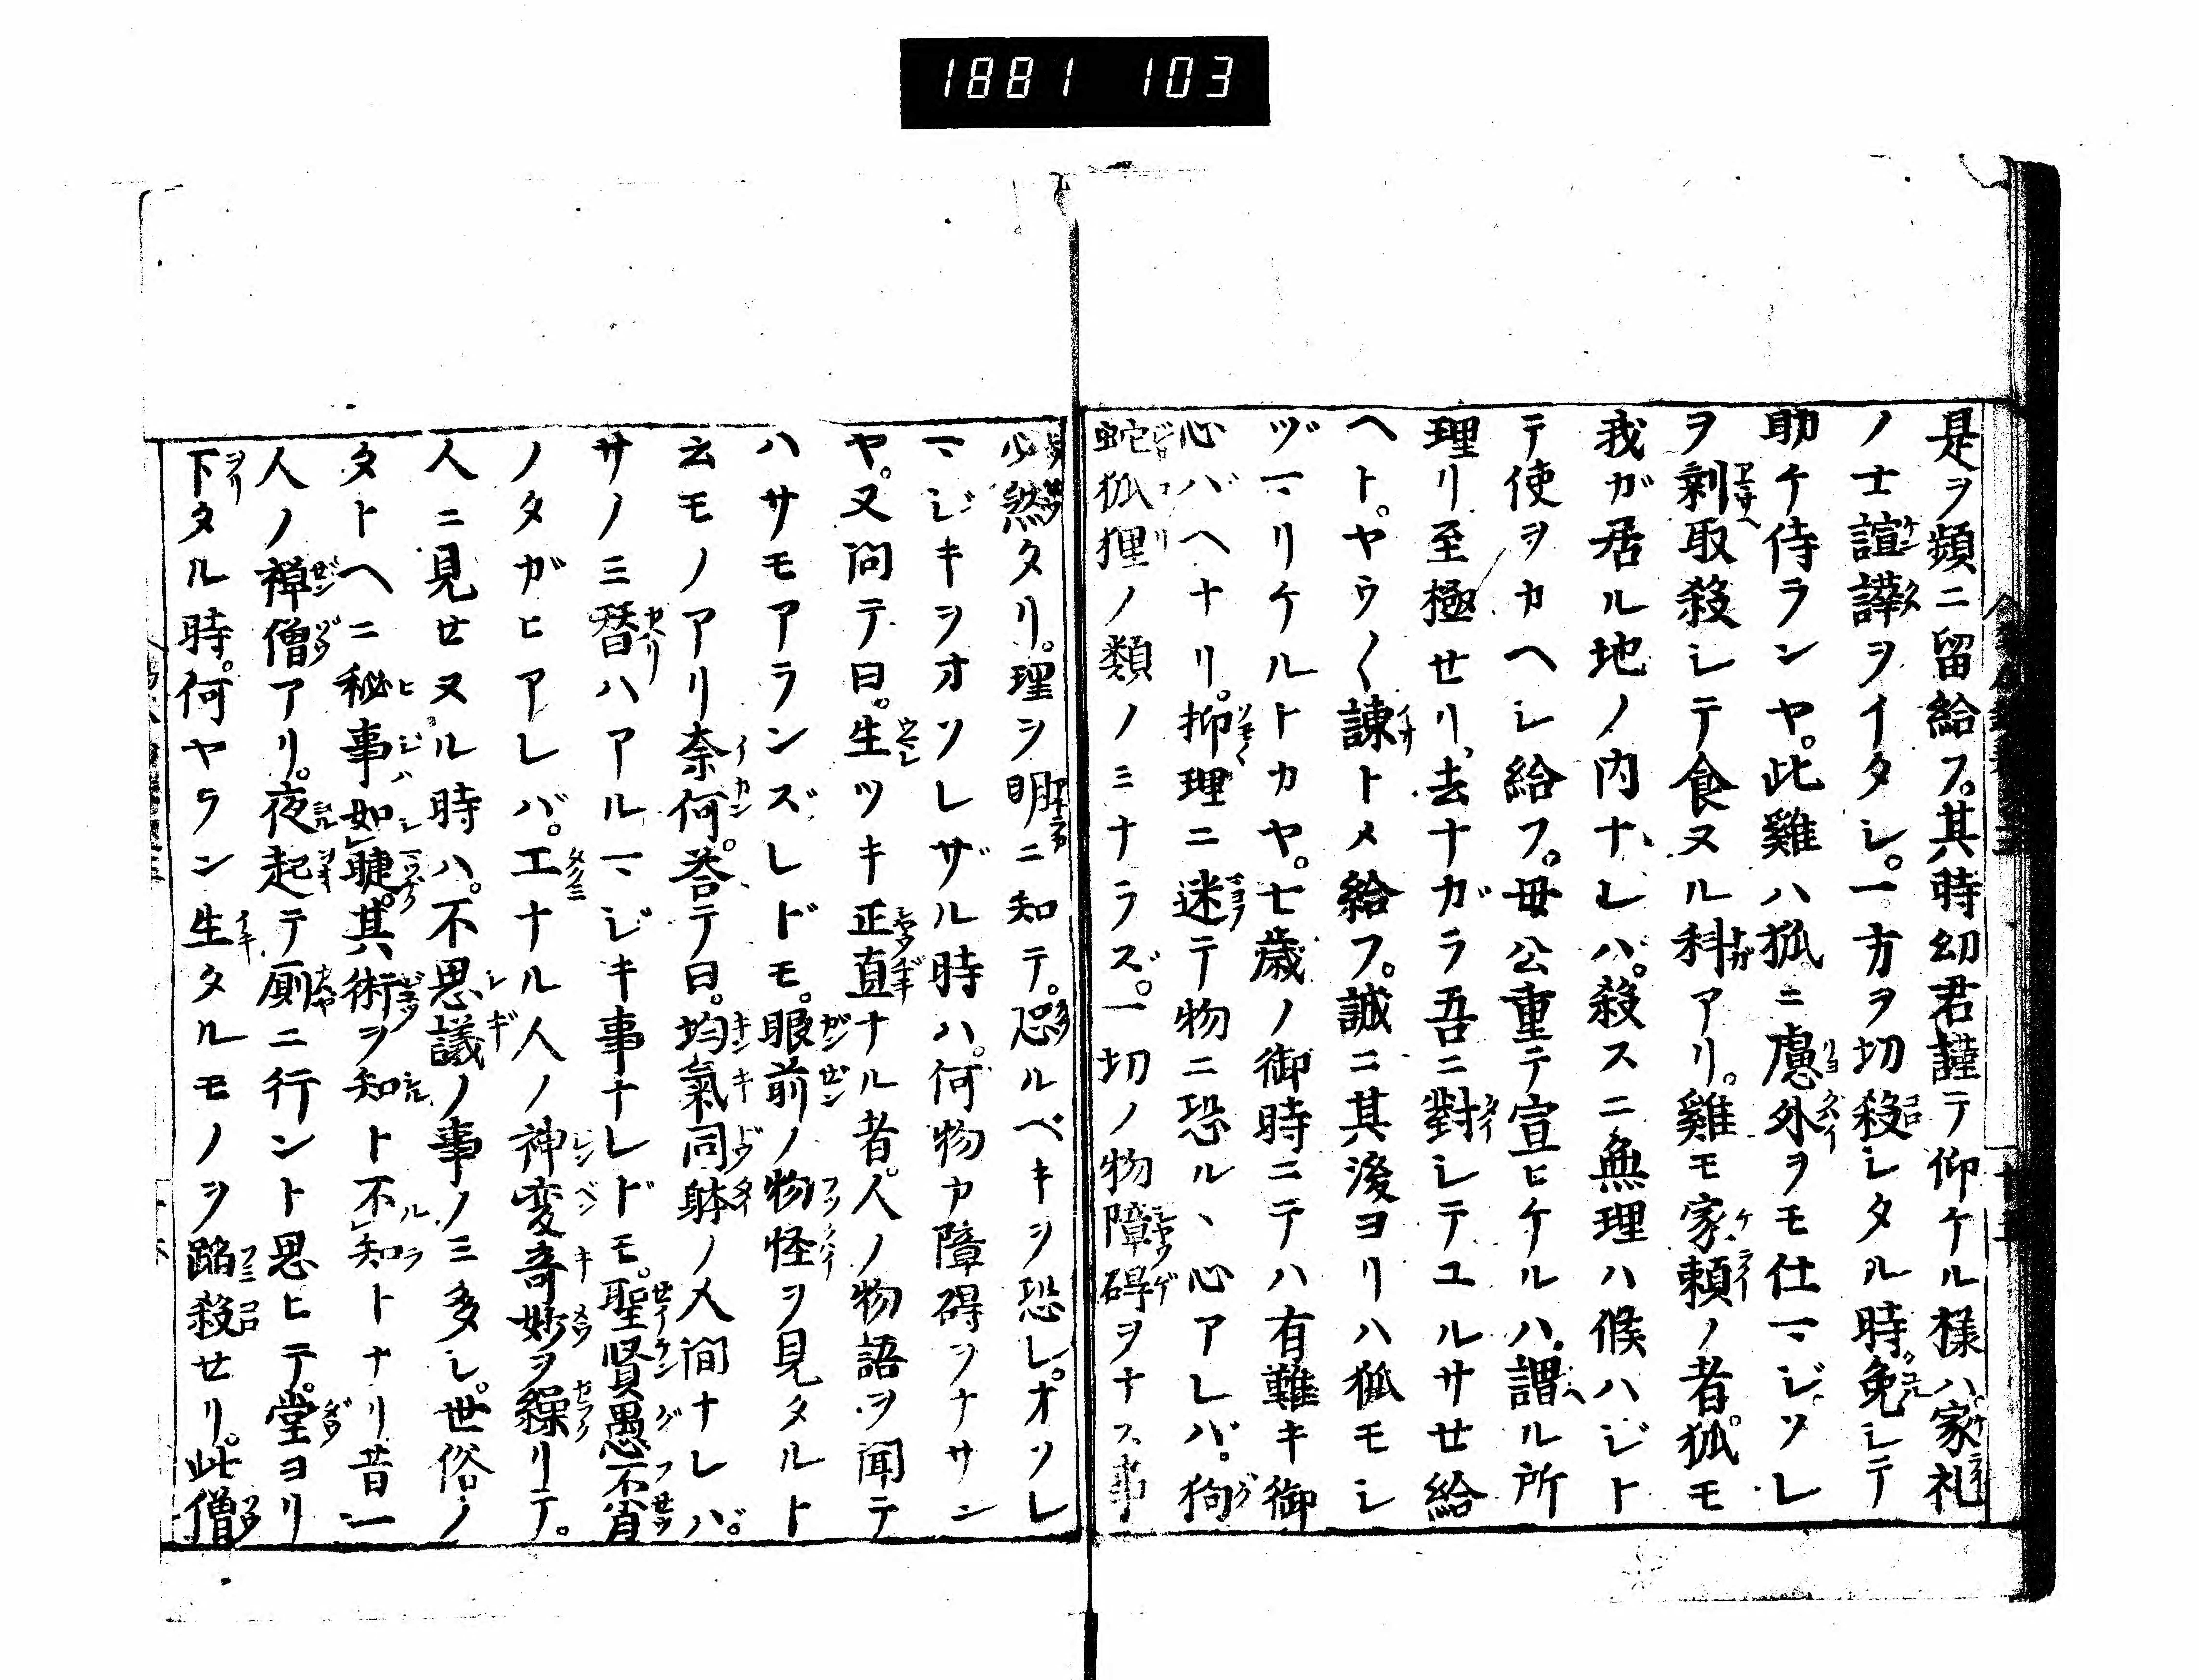 1881 103
是ヲ頻ニ留給フ。其時幼君謹テ仰ケル様ハ。家礼
ノ士諠譁ヲイタシ。一方ヲ切殺シタル時。免シテ
助ケ侍ランヤ。此雞ハ狐ニ慮外ヲモ仕マジソレ
ヲ剰取殺シテ食ヌル科アリ。雞モ家頼ノ者。狐モ
我ガ居ル地ノ内ナレバ。殺スニ無理ハ候ハジト
テ使ヲカヘシ給フ。母公重テ宣ヒケルハ。謂ル所
理リ至極せリ、去ナガラ吾ニ對シテユルサせ給
ヘト。ヤウ〱諫トメ給フ。誠ニ其後ヨリハ狐モシ
ヅマリケルトカヤ。七歳ノ御時ニテハ有難キ御
心バヘナリ。抑理ニ迷テ物ニ恐ルヽ心アレバ。狗
蛇狐狸ノ類ノミナラズ。一切ノ物障碍ヲナス事
必然タリ。理ヲ明ニ知テ。恐ルベキヲ恐レ。オソレ
マジキヲオソレザル時ハ。何物カ障碍ヲナサン
ヤ。又問テ曰。生ツキ正直ナル者。人ノ物語ヲ聞テ
ハサモアランズレドモ。眼前ノ物怪ヲ見タルト
云モノアリ奈何。答テ曰。均氣同躰ノ人間ナレバ。
サノミ替ハアルマジキ事ナレドモ。聖賢愚不肖
ノタガヒアレバ。工ナル人ノ神変奇妙ヲ繰リテ。
人ニ見せヌル時ハ。不思議ノ事ノミ多シ。世俗ノ
タトヘニ秘事如睫。其術ヲ知ト不知トナリ昔一
人ノ禅僧アリ。夜起テ厠ニ行ント思ヒテ。堂ヨリ
下タル時。何ヤラン生タルモノヲ蹈殺せリ。此僧